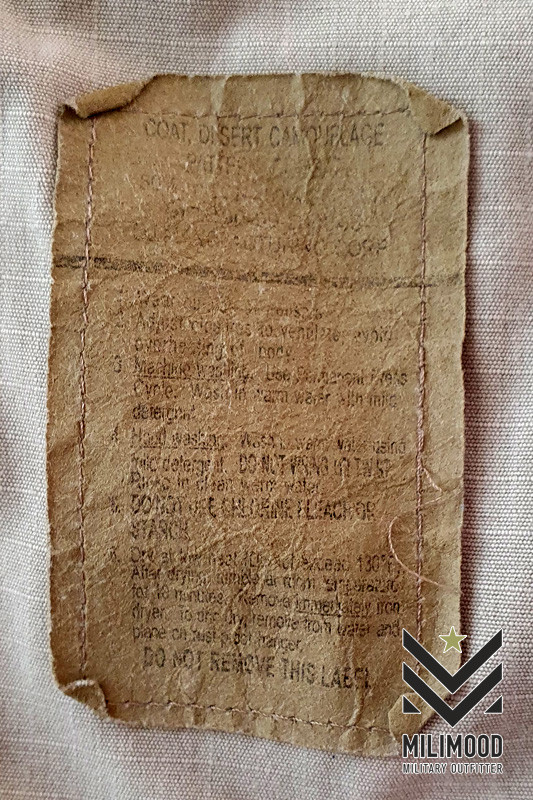 COAT, DESERT CAMOUFLAGE
CORP
1. Wear outside of
2. Adjust closures to ventilate, avoid
overheating of body.
3. Machine washing. Use Permanent Press
Cycle. Wash in warm water with mild
detergent.
4. Hand washing. Wash in warm water using
mild detergent. DO NOT WRING OR TWIST.
Rinse in clean warm water.
5. DO NOT USE CHLORINE BLEACH OR
STARCH.
6. Dry at low heat (Do not exceed 130°F).
After drying, tumble at room temperature
for 10 minutes. Remove immediately from
dryer. To drip dry, remove from water and
place on rust-proof hanger.
DO NOT REMOVE THIS LABEL
MILIMOOD
MILITARY OUTFITTER